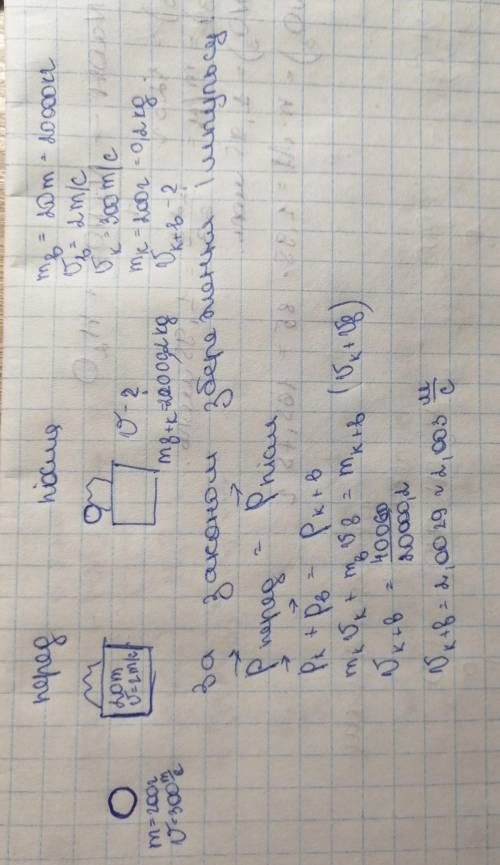 перед
після
m=200г
v=300 m/c
20т
v=2 m/c
v - ?
mв+к=20000,2 kg
mв = 20т = 20000кг
vв = 2 m/c
vк = 300 m/c
mк = 200г = 0,2 kg.
vк+в - ?
За законом збереження імпульсу:
p⃗перед = p⃗післ
p⃗к + p⃗в = pк+в
mкvк + mвvв = mк+в (vк+vв)
vк+в = 40060/20000,2
vк+в = 2,0029 ≈ 2,003 м/с